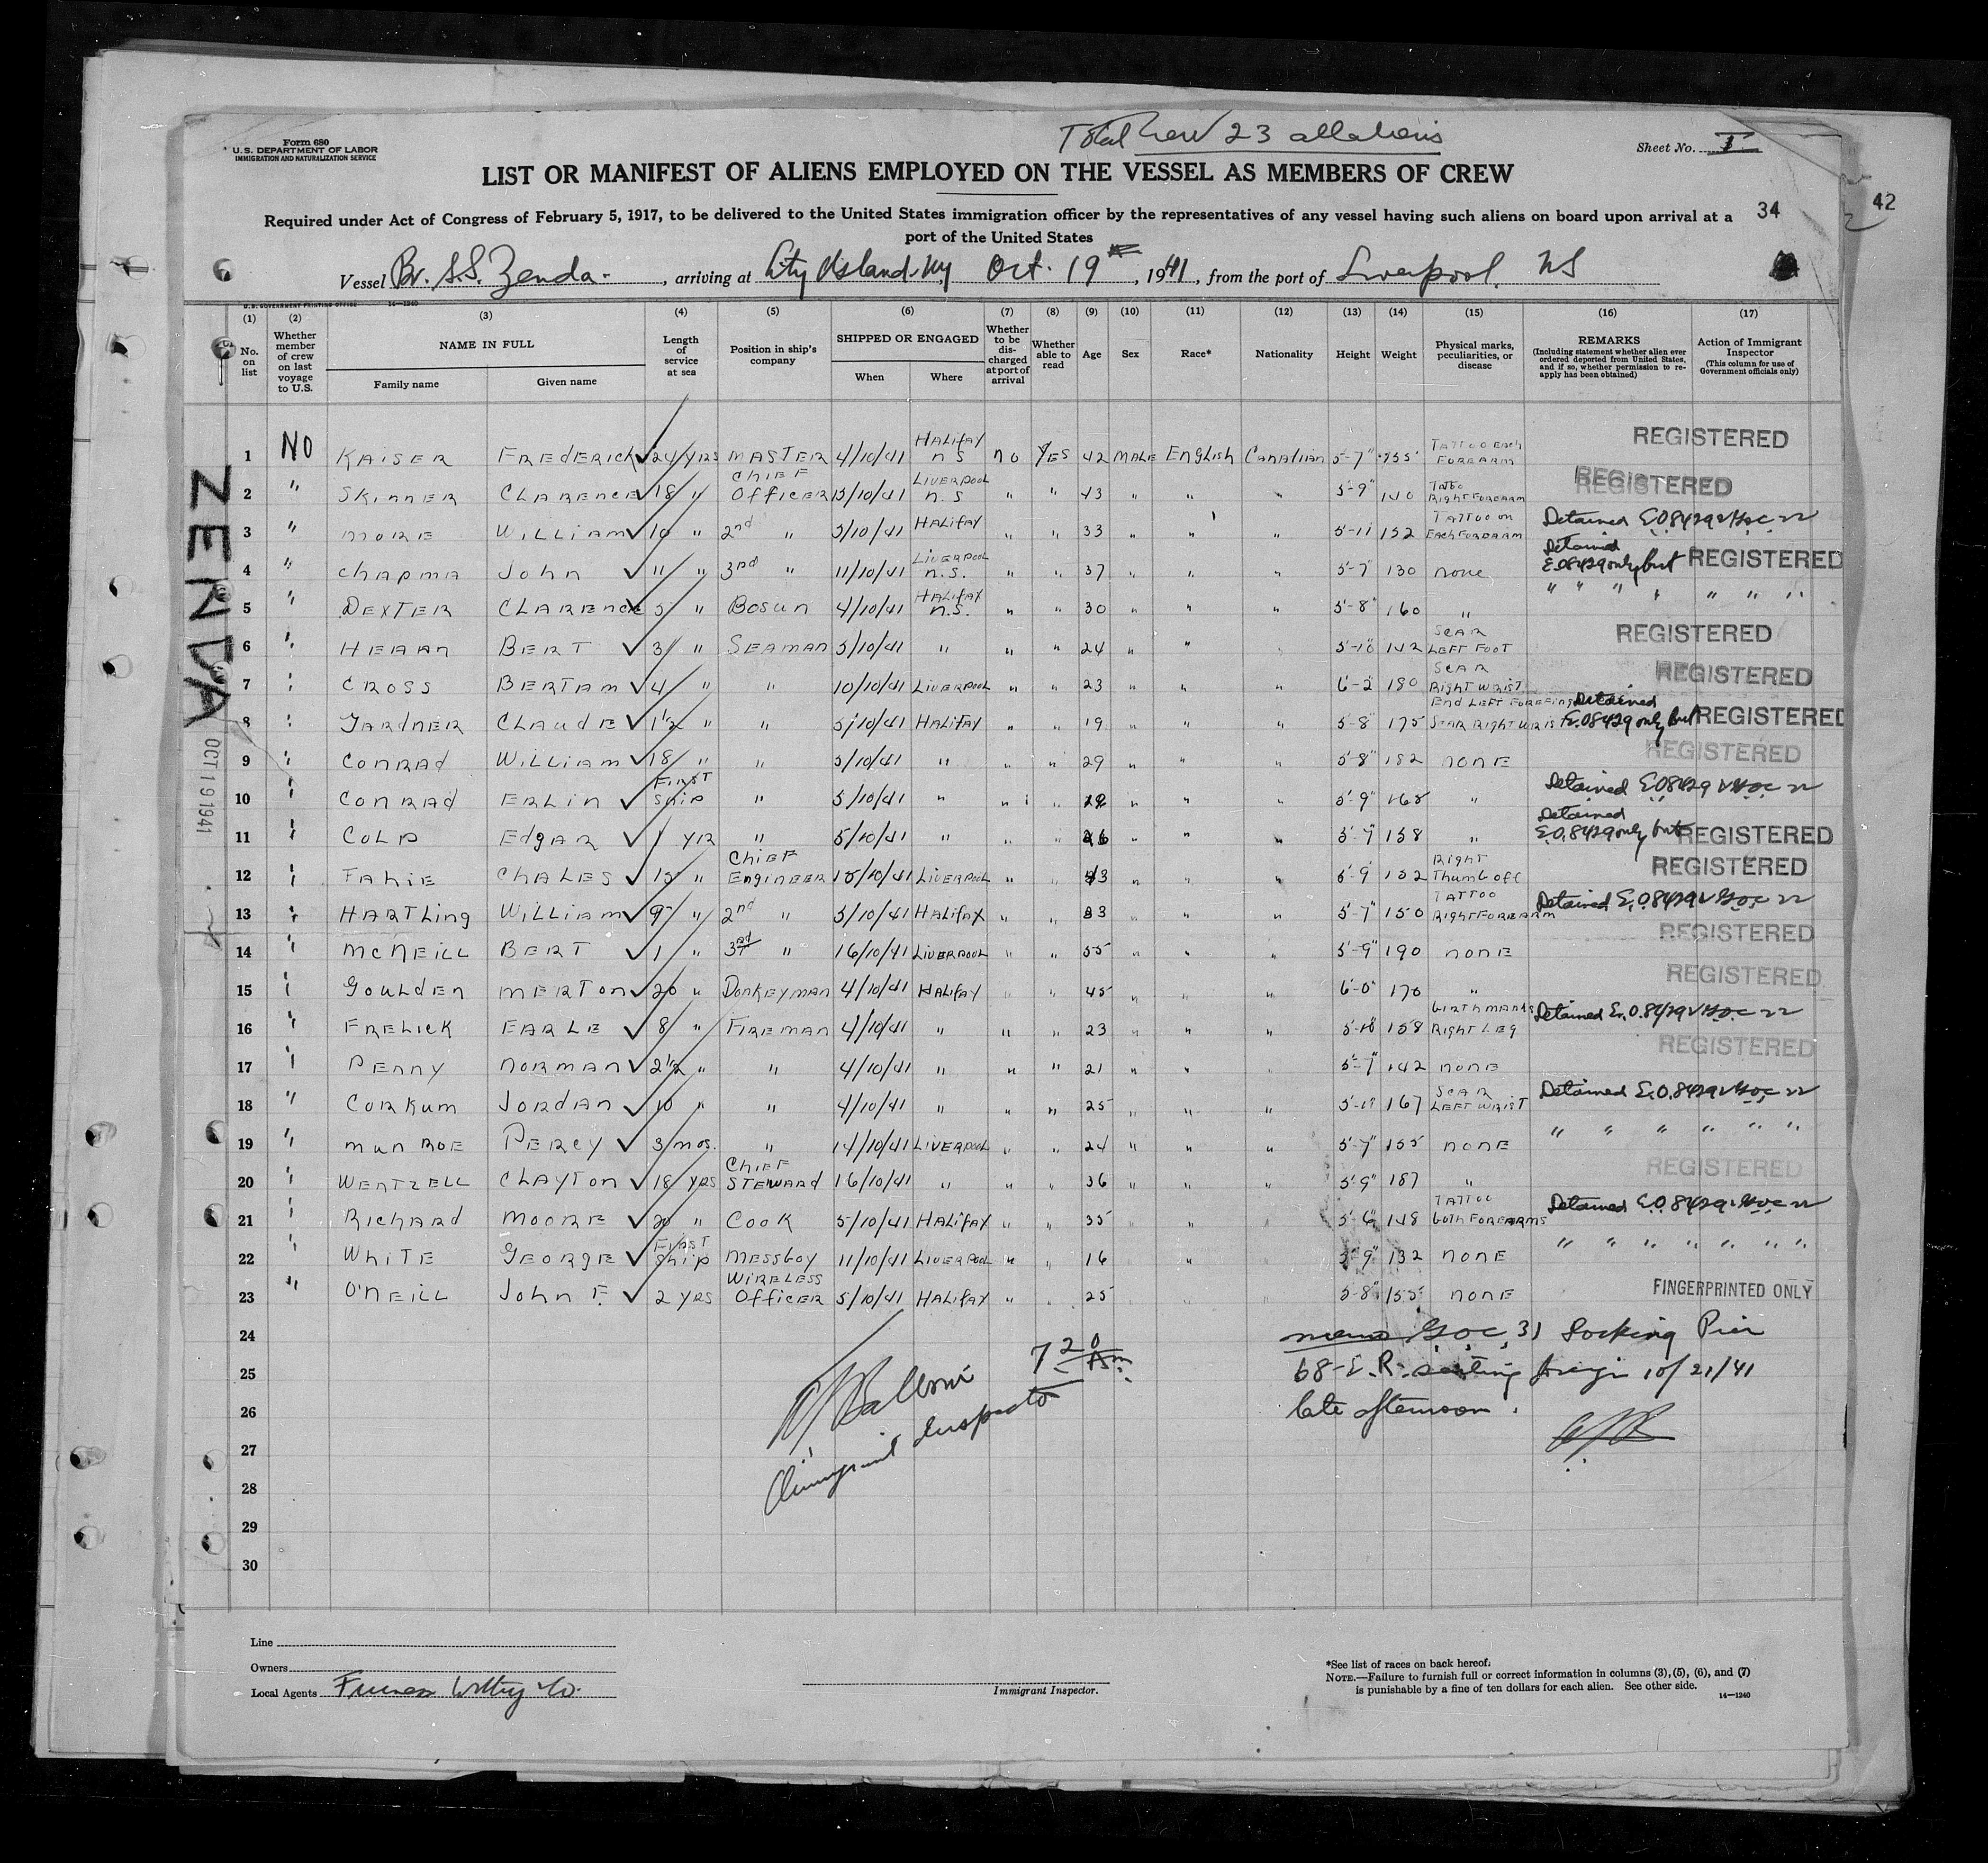 Total Crew 23 all aliens
Form 680
U. S. DEPARTMENT OF LABOR
IMMIGRATION AND NATURALIZATION SERVICE
Sheet No. 1
LIST OR MANIFEST OF ALIENS EMPLOYED ON THE VESSEL AS MEMBERS OF CREW
Required under Act of Congress of February 5, 1917, to be delivered to the United States immigration officer by the representatives of any vessel having such aliens on board upon arrival at a
port of the United States
34
42
Vessel Br. S.S. Zenda , arriving at City Island. Ny, Oct. 19th, 1941, from the port of Liverpool. NS
U. S. GOVERNMENT PRINTING OFFICE 14—1240
(1) No. on list
(2) Whether member of crew on last voyage to U.S.
(3) NAME IN FULL Family name Given name
(4) Length of service at sea
(5) Position in ship's company
(6) SHIPPED OR ENGAGED When Where
(7) Whether to be discharged at port of arrival
(8) Whether able to read
(9) Age
(10) Sex
(11) Race*
(12) Nationality
(13) Height
(14) Weight
(15) Physical marks, peculiarities, or disease
(16) REMARKS (Including statement whether alien ever ordered deported from United States, and if so, whether permission to reapply has been obtained)
(17) Action of Immigrant Inspector (This column for use of Government officials only)
1 NO KAISER FREDERICK 24 YRS MASTER 4/10/41 HALIFAX NS NO YES 42 MALE English Canadian 5-7" 155 TATTOO EACH FOREARM REGISTERED
2 " SKINNER CLARENCE 18 " CHIEF OFFICER 13/10/41 LIVERPOOL N.S " " 43 " " " 5'-9" 140 TATOO Right FOREARM REGISTERED
3 " MORE WILLIAM 10 " 2nd " 5/10/41 HALIFAX " " 33 " " " 5-11 152 TATTOO on Each FOREARM Detained E.O.8429 & GOC 22
4 " CHAPMA John 11 " 3rd " 11/10/41 LIVERPOOL N.S. " " 37 " " " 5'-7" 130 none Detained E.O.8429 only but REGISTERED
5 " DEXTER CLARENCE 5 " BOSUN 4/10/41 HALIFAX N.S. " " 30 " " " 5'-8" 160 " " " " " " " "
6 " HEAAN BERT 3 " SEAMAN 5/10/41 " " " 24 " " " 5'-10" 142 SCAR LEFT FOOT REGISTERED
7 " CROSS BERTAM 4 " " 10/10/41 LIVERPOOL " " 23 " " " 6'-2" 180 SCAR Right WRIST REGISTERED
8 " GARDNER CLAUDE 1½ " " 5/10/41 HALIFAX " " 19 " " " 5'-8" 175 End LEFT FOREFING SCAR Right WRIST Detained E.O.8429 only but REGISTERED
9 " CONRAD WILLIAM 18 " " 5/10/41 " " " 29 " " " 5'-8" 182 NONE REGISTERED
10 " CONRAD ERLIN FIRST SHIP " 5/10/41 " " " " " " 5'-9" 165 " Detained E.O.8429 & GOC 22
11 " COLP Edgar 1 YR " 5/10/41 " " " 26 " " " 5'-7" 158 " Detained E.O.8429 only but REGISTERED
12 " FAHIE CHALES 15 " CHIEF ENGINEER 15/10/41 LIVERPOOL " " 43 " " " 5'-9 152 Right Thumb off REGISTERED
13 " HARTLING WILLIAM 9 " 2nd " 5/10/41 HALIFAX " " 33 " " " 5'-7" 150 TATTOO Right FOREARM Detained E.O.8429 & GOC 22
14 " McNEILL BERT 1 " 3rd " 16/10/41 LIVERPOOL " " 55 " " " 5'-9" 190 NONE REGISTERED
15 " Goulden MERTON 20 " DONKEYMAN 4/10/41 HALIFAX " " 45 " " " 6'-0" 170 " REGISTERED
16 " FRELICK EARLE 8 " FIREMAN 4/10/41 " " " 23 " " " 5'-10" 158 birthmarks Right LEG Detained E.O.8429 & GOC 22
17 " PENNY NORMAN 2½ " " 4/10/41 " " " 21 " " " 5'-7" 142 NONE REGISTERED
18 " CORKUM JORDAN 10 " " 4/10/41 " " " 25 " " " 167 SCAR LEFT WRIST Detained E.O.8429 & GOC 22
19 " MUNROE PERCY 3 MOS. " 14/10/41 LIVERPOOL " " 24 " " " 5'-7" 155 NONE " " " " " "
20 " WENTZELL CLAYTON 18 YRS CHIEF STEWARD 16/10/41 " " " 36 " " " 5'-9" 187 " REGISTERED
21 " RICHARD MOORE 20 " COOK 5/10/41 HALIFAX " " 35 " " " 5'-6" 148 TATTOO both FOREARMS Detained E.O.8429 & GOC 22
22 " WHITE GEORGE FIRST SHIP MESSBOY 11/10/41 LIVERPOOL " " 16 " " 5'-9" 132 NONE " " " " " " "
23 " O'NEILL John F. 2 YRS WIRELESS OFFICER 5/10/41 HALIFAX " " 25 " " " 5-8" 155 NONE FINGERPRINTED ONLY
24
25
26
27
28
29
30
ZENDA
OCT 19 1941
7 20 Am.
Immigrant Inspector
memo GOC 31 Docking Pier
68-E.R. foreign 10/21/41
late afternoon.
Line
Owners
Local Agents Furness Withy & Co.
Immigrant Inspector.
*See list of races on back hereof.
NOTE.—Failure to furnish full or correct information in columns (3), (5), (6), and (7)
is punishable by a fine of ten dollars for each alien. See other side.
14—1240